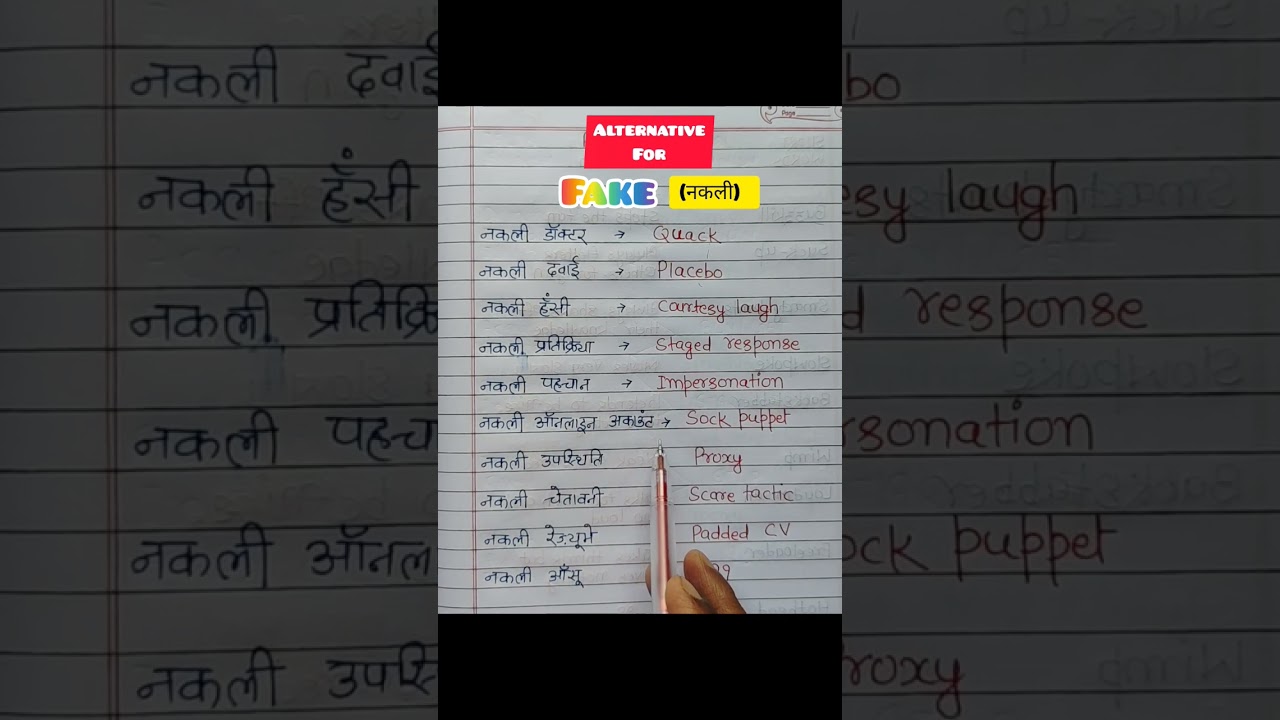 Page
ALTERNATIVE
FOR
FAKE (नकली)
नकली डॉक्टर → Quack
नकली दवाई → Placebo
नकली हँसी → Courtesy laugh
नकली प्रतिक्रिया → Staged response
नकली पहचान → Impersonation
नकली ऑनलाइन अकाउंट → Sock puppet
नकली उपस्थिति Proxy
नकली चेतावनी Scare tactic
नकली रेज़्यूमे Padded CV
नकली आँसू